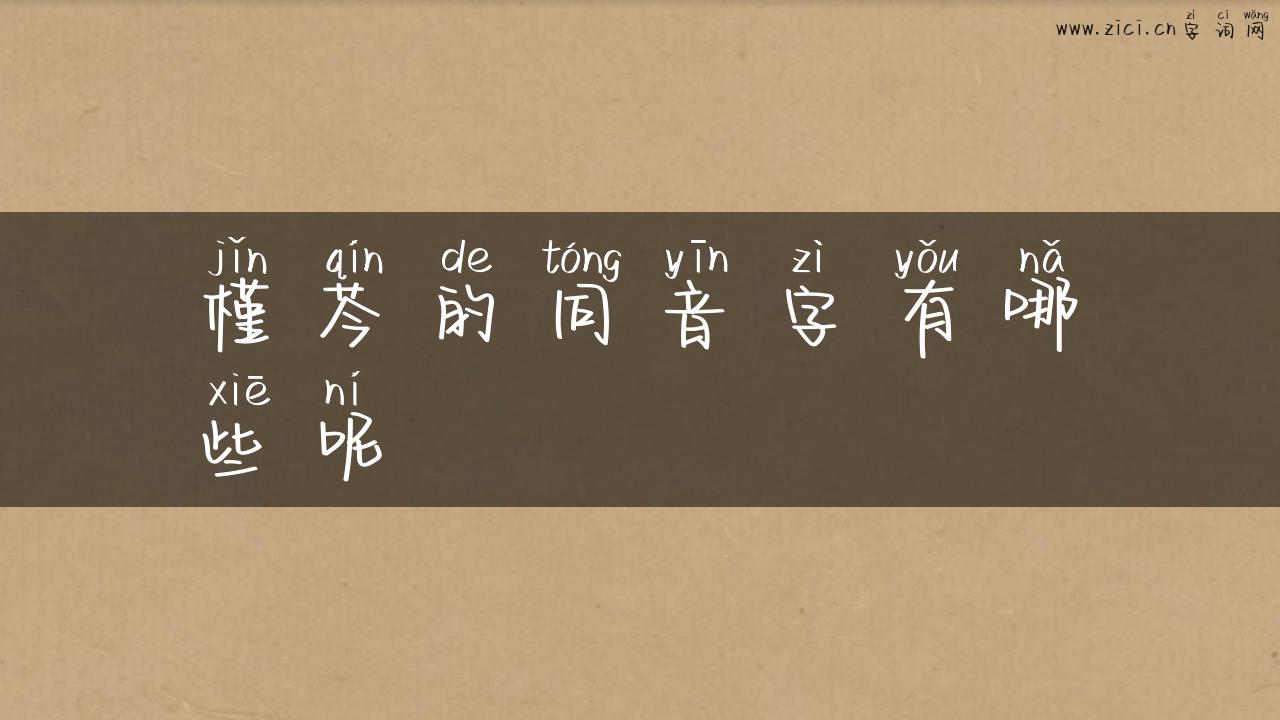 zì cí wǎng
www.zici.cn 字词网
jǐn qín de tóng yīn zì yǒu nǎ
槿芩的同音字有哪
xiē ní
些呢